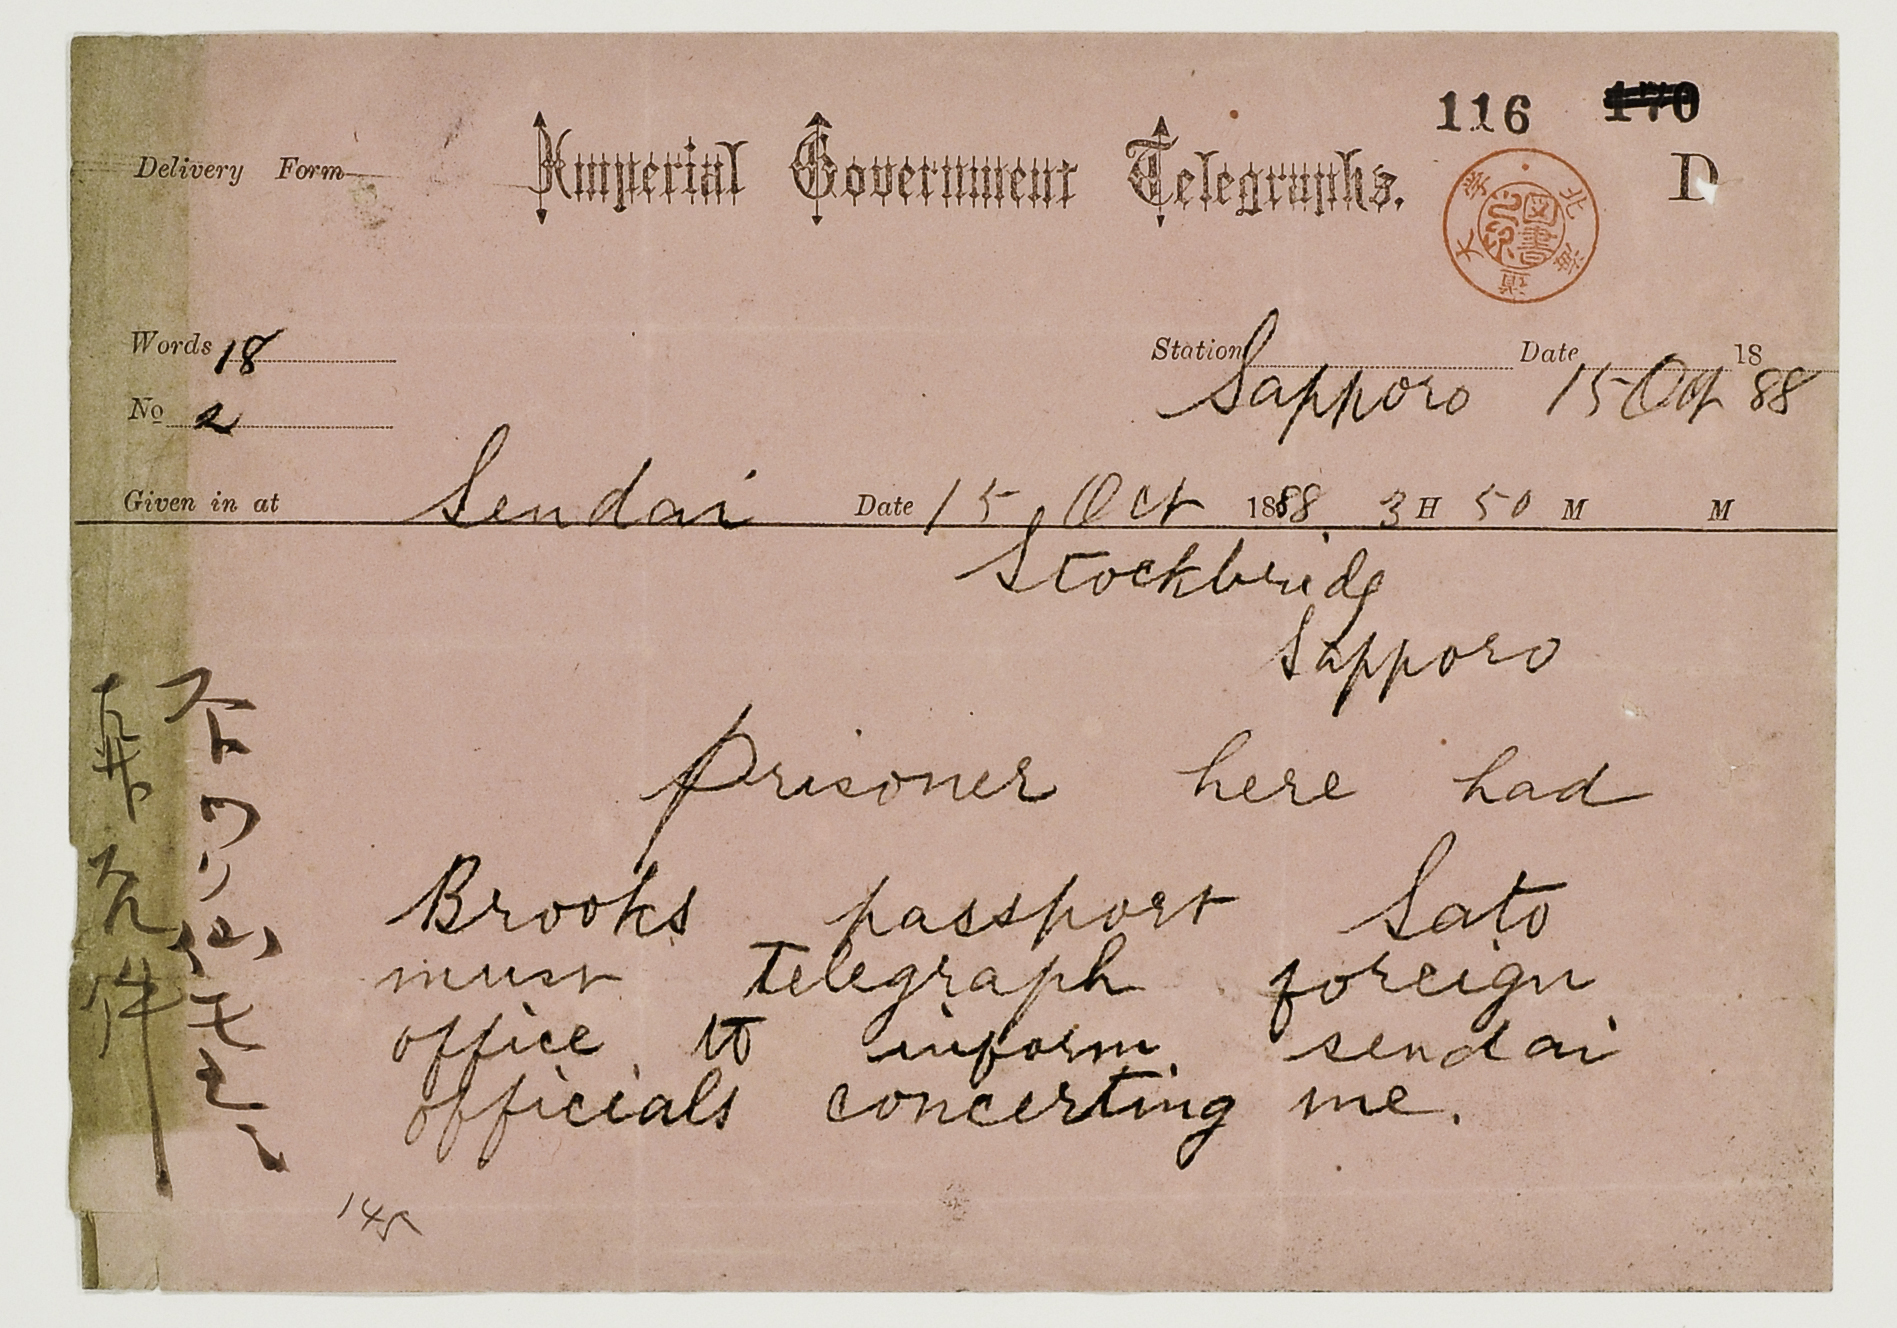 116 170
Delivery Form Imperial Government Telegraphs. D
北海道大学
図書
Words 18
Station Sapporo Date 15 Oct 1888
No 2
Given in at Sendai Date 15 Oct 1888 3 H 50 M M
Stockbridg
Sapporo
Prisoner here had
Brooks passport Sato
must telegraph foreign
office to inform sendai
officials concerting me.
145